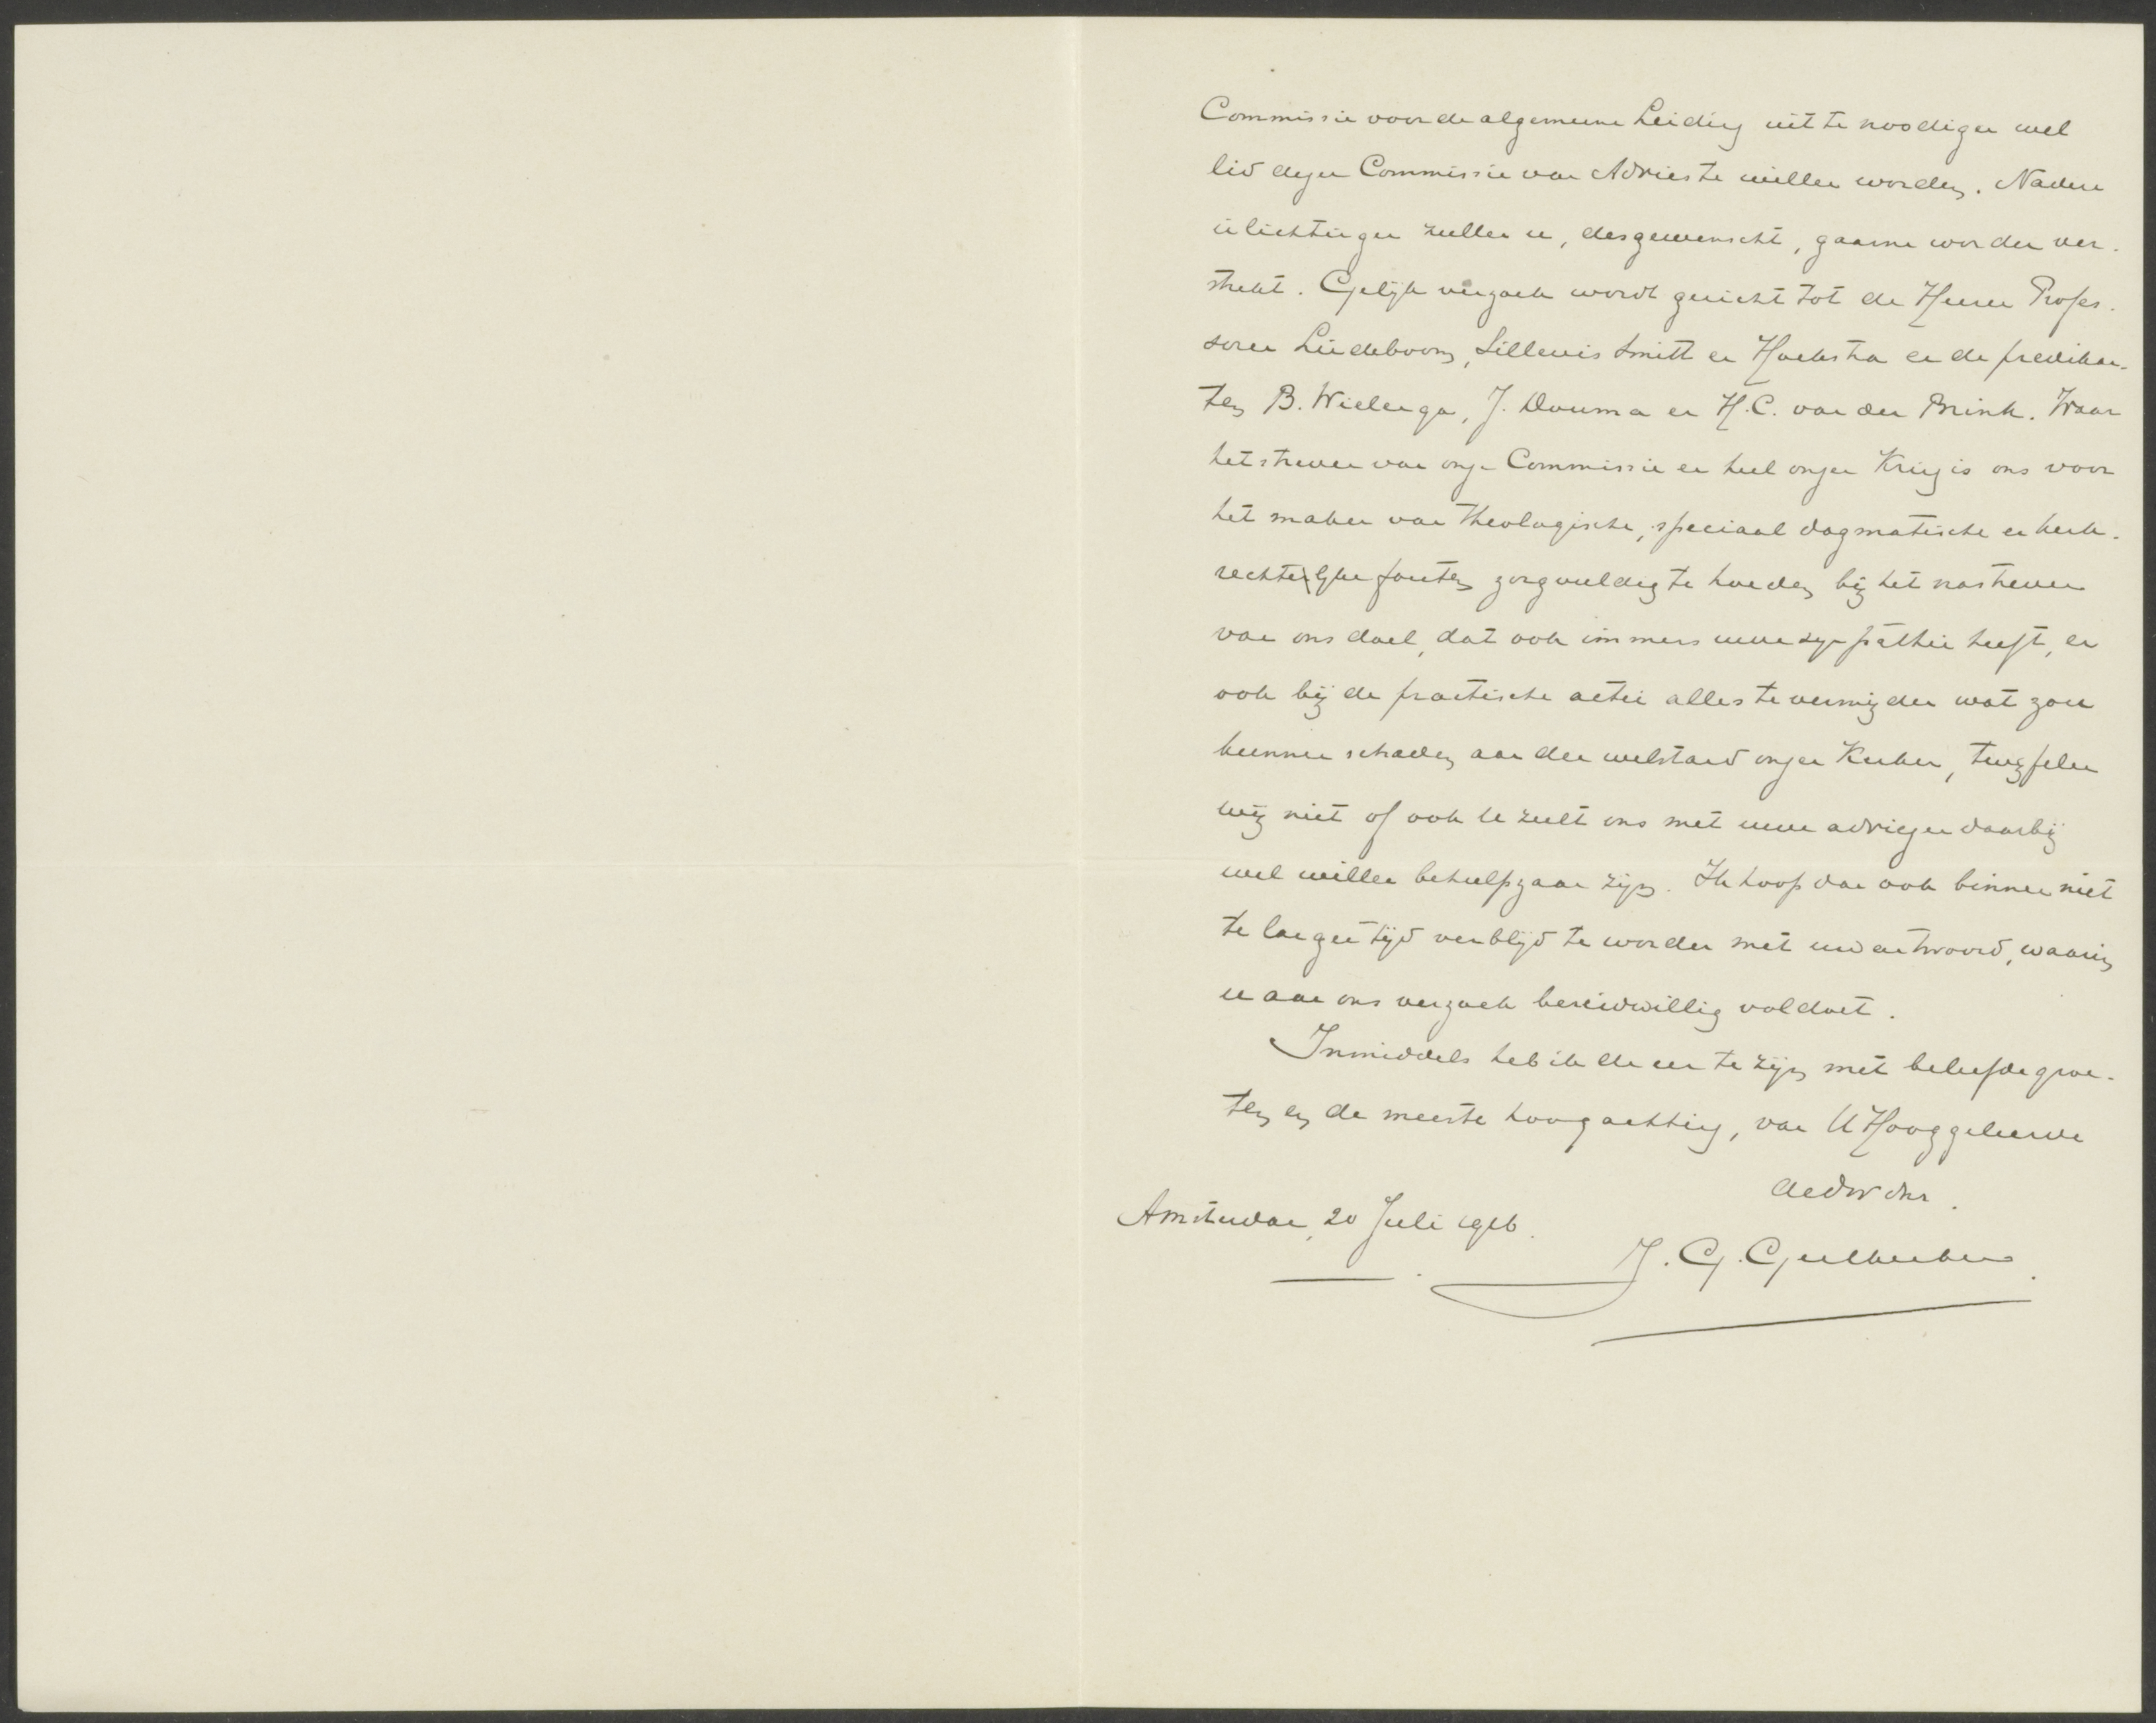 Commissie voor de algemeene Leiding uit te noodigen wel
lid dezer Commissie van Advies te willen worden. Nadere
inlichtingen zullen u, desgewenscht, gaarne worden ver-
strekt. Gelijk verzoek wordt gericht tot de Heeren Profes-
soren Lindeboom, Sillevis Smitt en Hoekstra en de predikan-
ten B. Wielenga, J. Douma en H.C. van den Brink. Waar
het streven van onze Commissie en heel onzen Kring is ons voor
het maken van theologische, speciaal dogmatische en kerk-
rechtelijke fouten zorgvuldig te hoeden bij het nastreven
van ons doel, dat ook immers uwe sympathie heeft, en
ook bij de practische actie alles te vermijden wat zou
kunnen schaden aan den welstand onzer Kerken, twijfelen
wij niet of ook U zult ons met uwe adviezen daarbij
wel willen behulpzaam zijn. Ik hoop dan ook binnen niet
te langen tijd verblijd te worden met uw antwoord, waarin
u aan ons verzoek bereidwillig voldoet.
Inmiddels heb ik de eer te zijn met beleefde groe-
ten en de meeste hoogachting, van U Hooggeleerde
de dw dnr.
Amsterdam, 20 Juli 1916.
J. G. Geelkerken